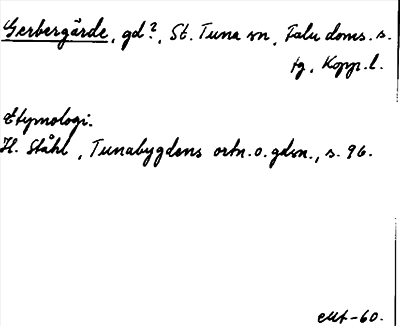 Gerbergärde, gd?, St. Tuna sn, Falu doms. s.
tg, Kopp. l.
Etymologi.
H. Ståhl, Tunabygdens ortn. o. gdn., s. 96.
-60.